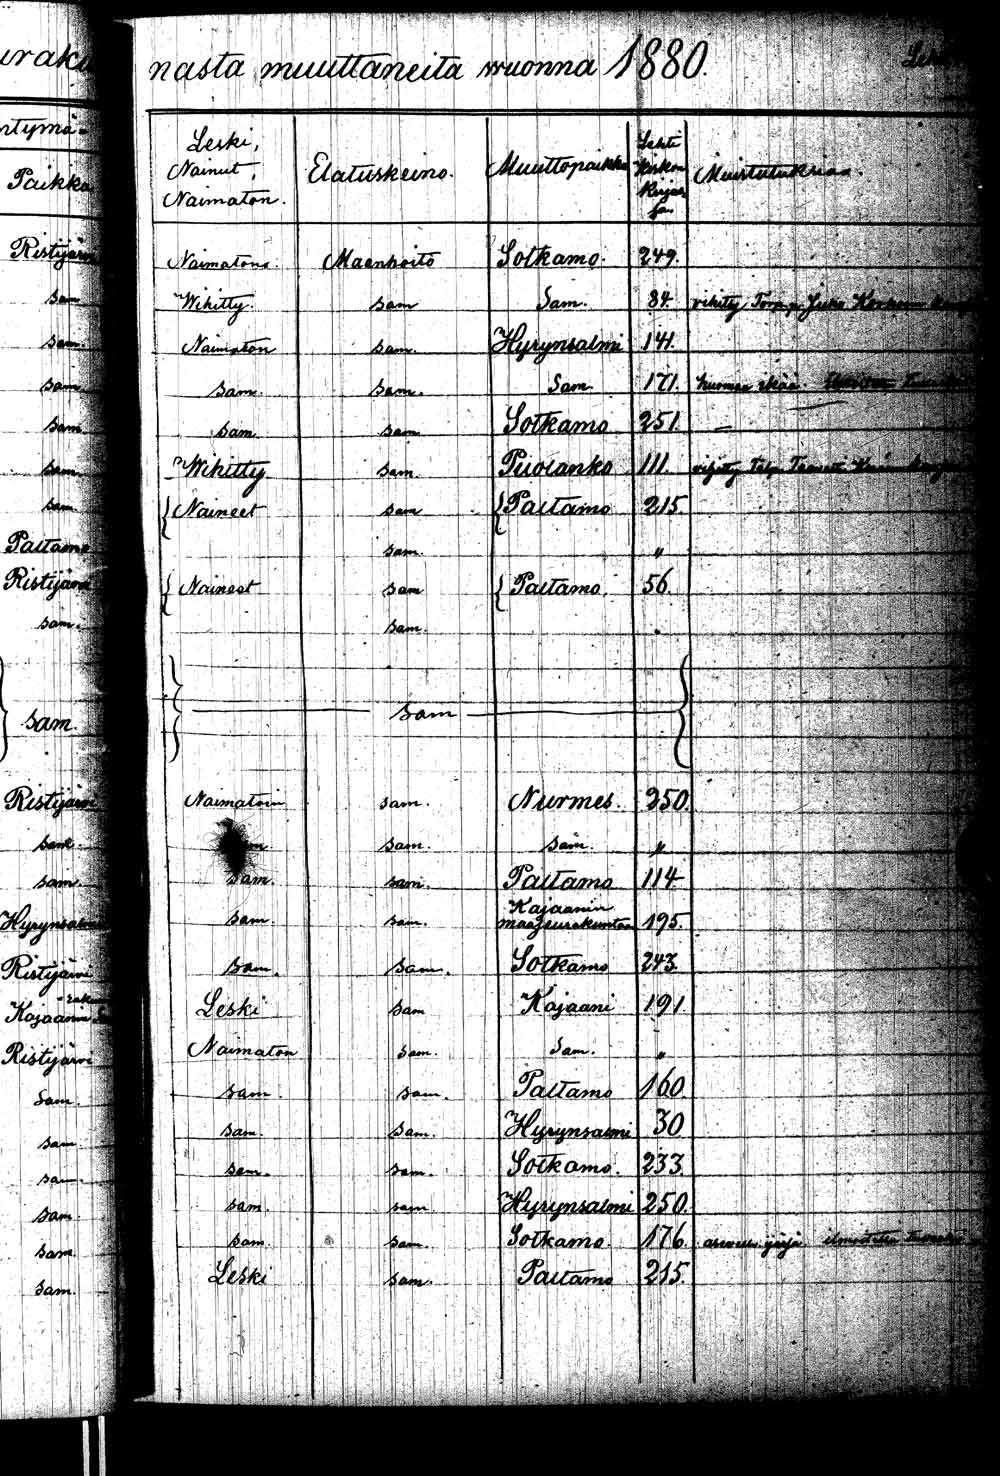 uraku nasta muuttaneita wuonna 1880. Leht
ntymä=
Paikka
Leski, Nainut, Naimaton. Elatuskeino. Muuttopaikka Lehti Kirkon Kirjas sa. Muistutuksia.
Ristijärvi Naimatons. Maanhoito Sotkamo. 249.
sam Wihitty. sam Sam. 84. vihitty Torp. Juho
sam. Naimaton sam. Hyrynsalmi 141.
sam. sam. sam. Sam. 171. huonoa ikää.
sam. sam. sam Sotkamo 251. —
sam Wihitty sam. Puolanko 111. vihitty
sam Naineet sam Paltamo 215
Paltamo sam. "
Ristijärvi Naineet sam Paltamo. 56.
sam. sam. "
sam. sam
Ristijärvi Naimatoin sam. Nurmes. 250.
sam. sam. sam. "
sam. sam. sam. Paltamo 114
Hyrynsalmi sam. sam. Kajaanin maaseurakuntaa 195.
Ristijärvi sam. sam. Sotkamo 243.
Kajaanin Leski sam Kajaani 191.
Ristijärvi Naimaton sam. Sam. "
Sam. sam. sam. Paltamo 160.
sam sam. sam. Hyrynsalmi 30
sam. sam. sam. Sotkamo. 233.
sam. sam. sam Hyrynsalmi 250.
sam. sam. sam. Sotkamo. 176.
sam. Leski sam. Paltamo 215.